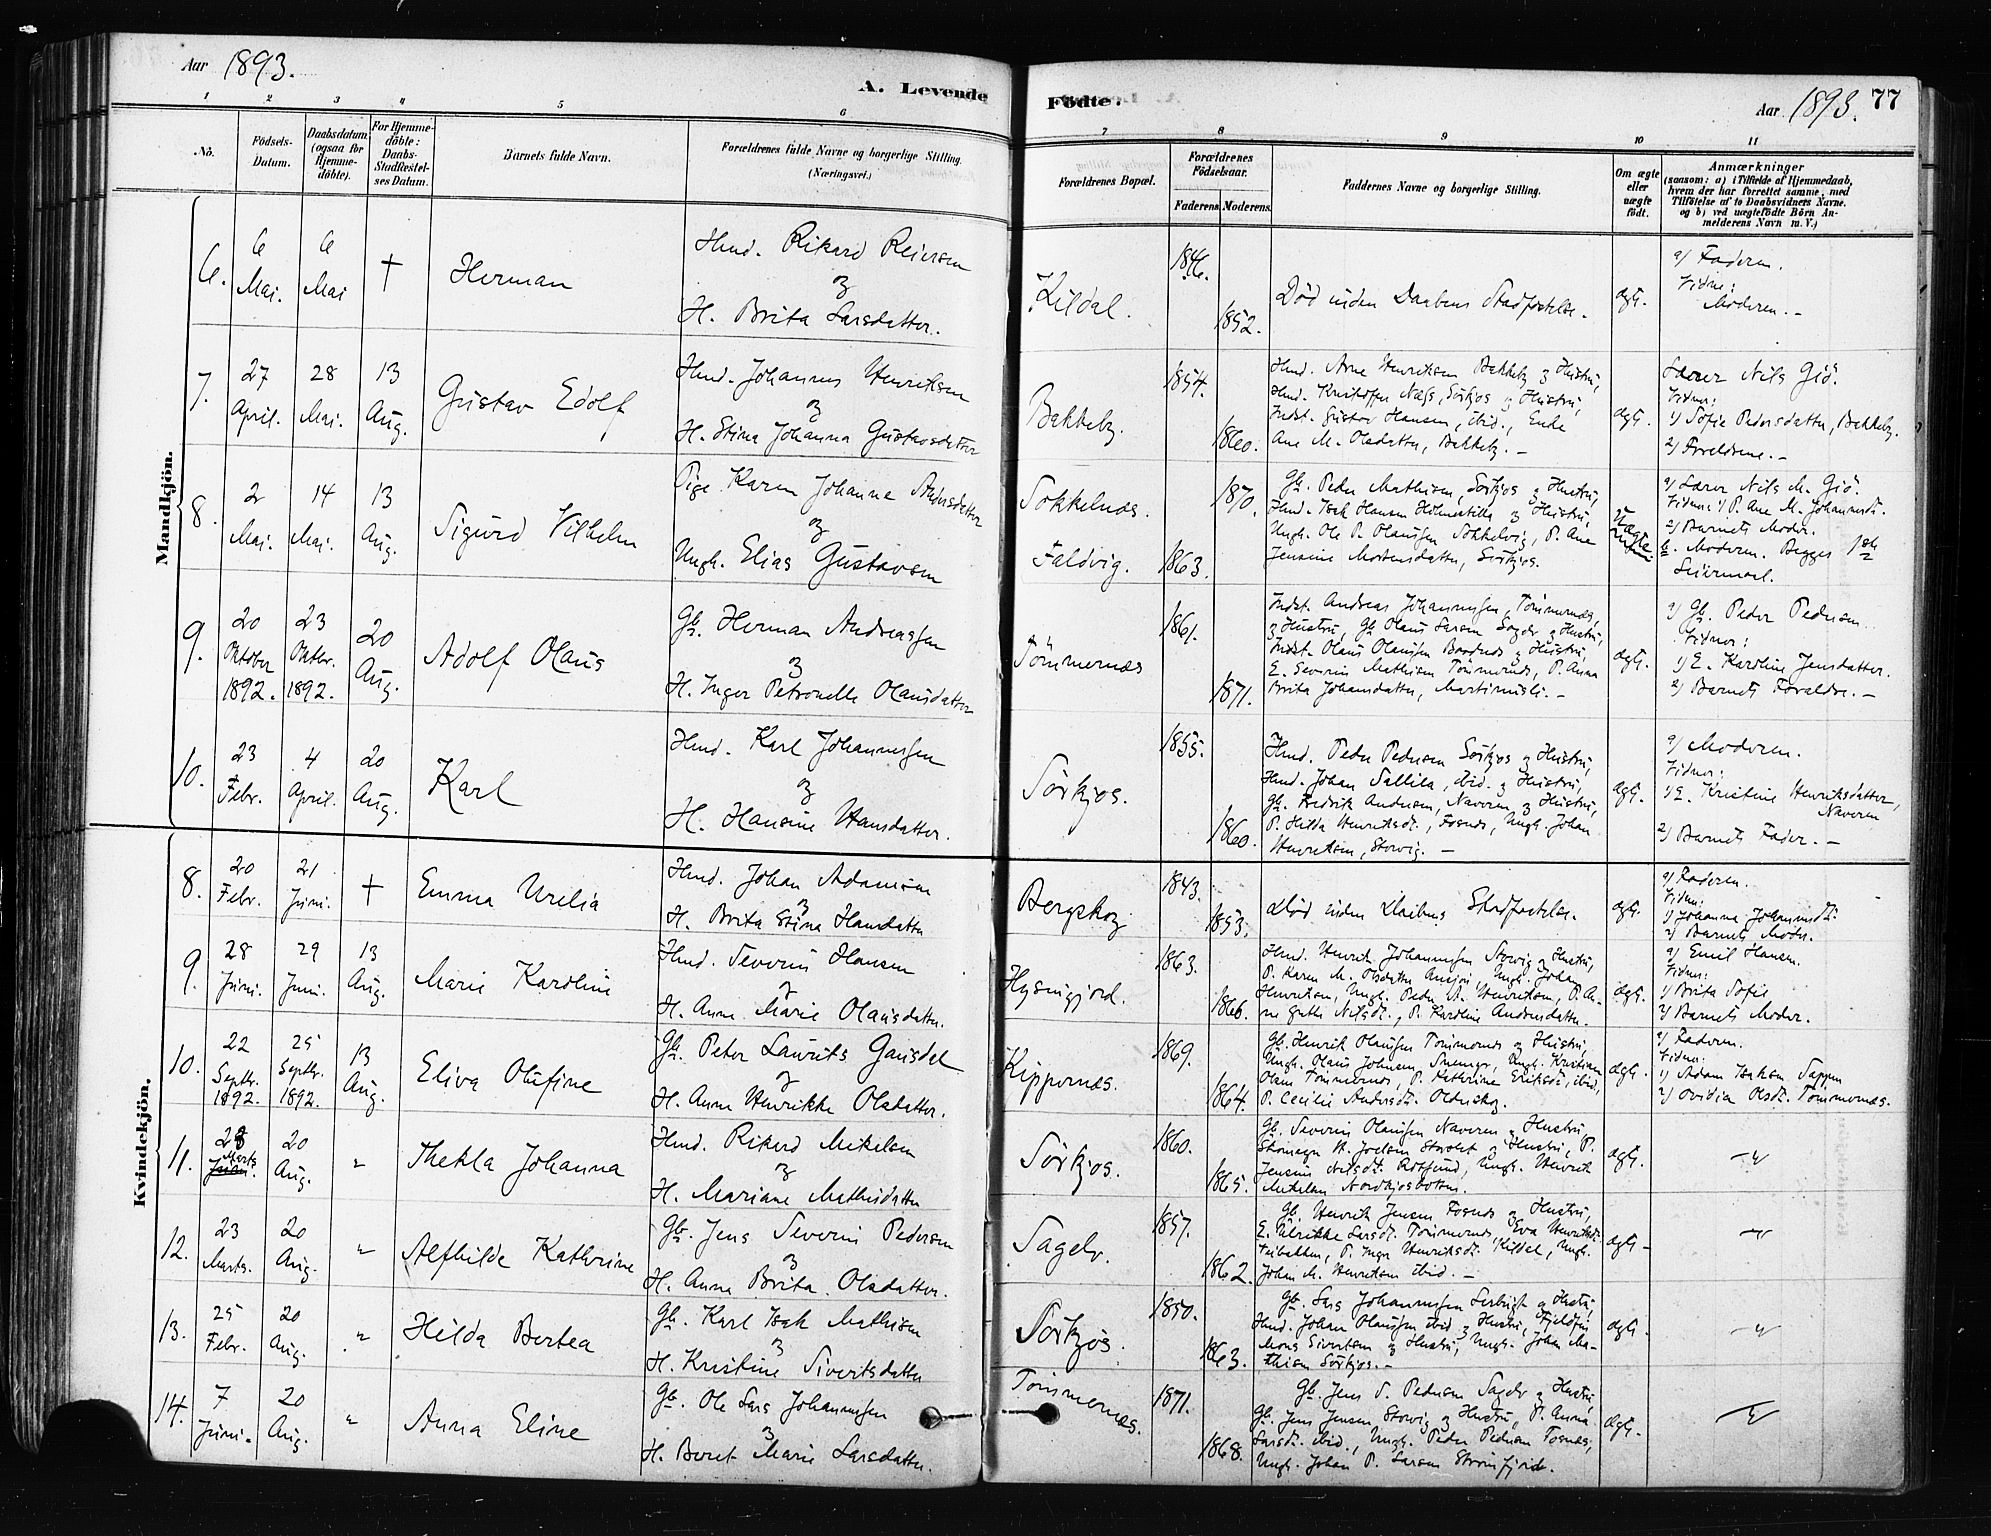 Aar 1893.
A. Levende
Födte.
Aar 1893. 77
1 2 3 4 5 6 7 8 9 10 11
No.
Födsels-
Datum.
Daabsdatum
(ogsaa for
Hjemme-
döbte).
For Hjemme-
döbte:
Daabs-
Stadfæstel-
ses Datum.
Barnets fulde Navn.
Forældrenes fulde Navne og borgerlige Stilling.
(Næringsvei.)
Forældrenes Bopæl.
Forældrenes
Födselsaar.
Faderens. Moderens.
Faddernes Navne og borgerlige Stilling.
Om ægte
eller
uægte
födt.
Anmærkninger
(saasom: a) i Tilfælde af Hjemmedaab,
hvem der har forrettet samme, med
Tilföielse af to Daabsvidners Navne.
og b) ved uægtefödte Börn An-
melderens Navn m. V.)
Mandkjön.
6. 6 Mai. 6 Mai † Herman
Hmd. Rikard Reiersen
og
H. Brita Larsdatter.
Kildal. 1846. 1852.
Död inden Daabens Stadfæstelse.
ægt.
a) Faderen.
Vidne:
Moderen. -
7. 27 April. 28 Mai. 13 Aug. Gustav Edolf
Hmd. Johannes Henriksen
og
H. Stina Johanna Gustavsdatter
Bakkeby. 1854. 1860.
Hmd. Arne Henriksen Bakkeby og Hustru,
Hmd. Kristoffer Næss, Sörkjos og Hustru,
Indst. Gustav Hansen, ibid., Enke
Ane M. Olsdatter, Bakkeby. -
ægt.
Lærer Nils Giö.
Vidner:
1) Sofie Pedersdatter, Bakkeby.
2) Forældrene. -
8. 2 Mai. 14 Mai. 13 Aug. Sigurd Vilhelm
Pige Karen Johanne Andersdatter
og
Ungk. Elias Gustavsen
Sokkelnæs. 1870.
Faldvig. 1863.
Gb. Peder Mathisen, Sörkjos og Hustru,
Hmd. Isak Hansen og Hustru,
Ungk. Ole P. Olaussen Sokkelvig, P. Ane
Jensine Mortensdatter, Sörkjos.
Uægte
a) Lærer Nils M. Giö.
Vidner: 1) P. Ane M. Johannesdt.
2) Barnets Moder.
b. Moderen. Begges 1ste
Leiermaal.
9. 20 Oktober 1892. 23 Oktbr. 1892. 20 Aug. Adolf Olaus
Gb. Herman Andreassen
og
H. Inger Petronelle Olausdatter
Tömmernæs 1861. 1871.
Indst. Andreas Johannessen, Tömmernæs,
og Hustru, Gb. Olaus Larsen Sagelv og Hustru,
Indst. Olaus Olaussen og Hustru,
E. Severin Mathisen Tömmernæs, P. Anna
Brita Johansdatter,
ægt.
a) Gb. Peder Pedersen
Vidner:
1) E. Karoline Jensdatter.
2) Barnets Forældre. -
10. 23 Febr. 4 April. 20 Aug. Karl
Hmd. Karl Johannessen
og
H. Hansine Hansdatter.
Sörkjos. 1855. 1860.
Hmd. Peder Pedersen Sörkjos og Hustru,
Hmd. Johan Sallila, ibid. og Hustru,
Gb. Fredrik Andersen, Naveren, og Hustru,
P. Hilda Henriksdt., Fosnæs, Ungk. Johan
Henriksen, Storvig. -
ægt.
a) Moderen.
Vidner:
1) E. Kristine Henriksdatter,
Naveren
2) Barnets Fader. -
Kvindekjön.
8. 20 Febr. 21 Juni. † Emma Urelia
Hmd. Johan Adamsen
og
H. Brita Stina Hansdatter
Bergskog 1843. 1853.
Död inden Daabens Stadfæstelse.
ægt.
a) Faderen.
Vidner:
1) Johanna Johannesdt.
2) Barnets Moder.
9. 28 Juni. 29 Juni. 13 Aug. Marie Karoline
Hmd. Severin Hansen
og
H. Anne Marie Olausdatter.
Hysingjord. 1863. 1866.
Hmd. Henrik Johannessen Storvig og Hustru,
P. Karen M. Olsdatter Ungk. Johan
Henriksen, Ungk. Peder A. Henriksen, P. An-
ne Nilsdt., P. Karoline Andersdatter.
ægt.
a) Emil Hansen.
Vidner:
1) Brita Sofie
2) Barnets Moder.
10. 22 Septbr. 1892. 25 Septbr. 1892. 13 Aug. Eliva Olufine
Gb. Peter Laurits Gausdal
og
H. Anne Henrikke Olsdatter.
Kippernæs. 1869. 1864.
Gb. Henrik Olaussen Tömmernæs og Hustru,
Ungk. Olaus Johnsen Ungk. Kristian
Olsen Tömmernæs, P. Kathrine Eriksdt. ibid,
P. Cecilie Andersdt. Olderskog.
ægt.
a) Faderen.
Vidner:
1) Adam Isaksen Sappen
2) Ovidia Olsdt. Tömmernæs.
11. 28 Marts Juni. 20 Aug. " Thekla Johanna
Hmd. Rikard Mikelsen
og
H. Mariane Mathisdatter
Sörkjos. 1860. 1865.
Gb. Severin Olaussen Naveren og Hustru, P.
Jensine Nilsdt. Rotsund, Ungk. Henrik
Mikelsen Nordkjosbotten.
ægt.
-"-
12. 23 Marts. 20 Aug. " Alfhilde Kathrine
Gb. Jens Severin Pedersen
og
H. Anne Brita Olsdatter.
Sagelv. 1857. 1862.
Gb. Henrik Jensen Fosnæs og Hustru,
E. Ulrikke Larsdt. Tömmernæs, Eva Henriksdt.
P. Inger Henriksdt. Kildal, Ungk.
Johan M. Henriksen ibid. -
ægt.
-"-
13. 25 Febr. 20 Aug. " Hilda Bertea
Gb. Karl Isak Mathisen
og
H. Kristine Sivertsdatter
Sörkjos. 1850. 1863.
Gb. Lars Johannessen og Hustru,
Hmd. Johan Olaussen ibid og Hustru,
Mons Sivertsen og Hustru, Ungk. Johan Ma-
thisen Sörkjos. -
ægt.
-"-
14. 7 Juni. 20 Aug. " Anna Eline
Gb. Ole Lars Johannessen
og
H. Beret Marie Larsdatter.
Tömmernæs. 1871. 1868.
Gb. Jens S. Pedersen Sagelv og Hustru,
Gb. Jens Jensen Storvig og Hustru, P. Anna
Larsdt. ibid., Ungk. Peder Pedersen Fosnæs,
Ungk. Johan P. Larsen Straumfjord.
ægt.
-"-